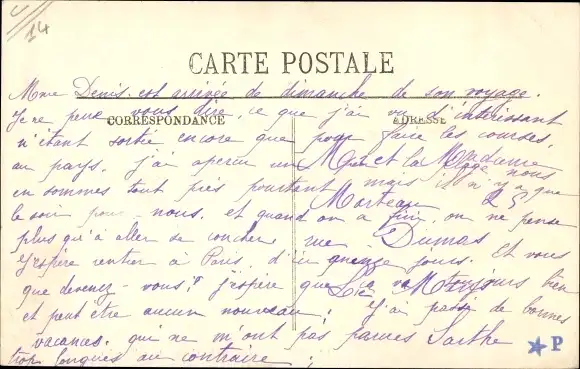 14
CARTE POSTALE
Mme Denis est arrivée de dimanche de son voyage.
Je ne peux vous dire, ce que j'ai vu d'intéressant
CORRESPONDANCE
ADRESSE
n'étant sortie encore que pour faire les courses,
au pays. j'ai aperçu un et la Madame
en sommes tout près pourtant mais il n'y a que nous
le soir pour nous. et quand on a fini, on ne pense
Morteau 25
plus qu'à aller se coucher rue Dumas Et vous
J'espère rentrer à Paris, d'ici quinze jours.
que devenez-vous? j'espère que va toujours bien
Le M
et peut être aucun nouveau. J'ai passé de bonnes
vacances, qui ne m'ont pas parues Sarthe
trop longues au contraire ;
P